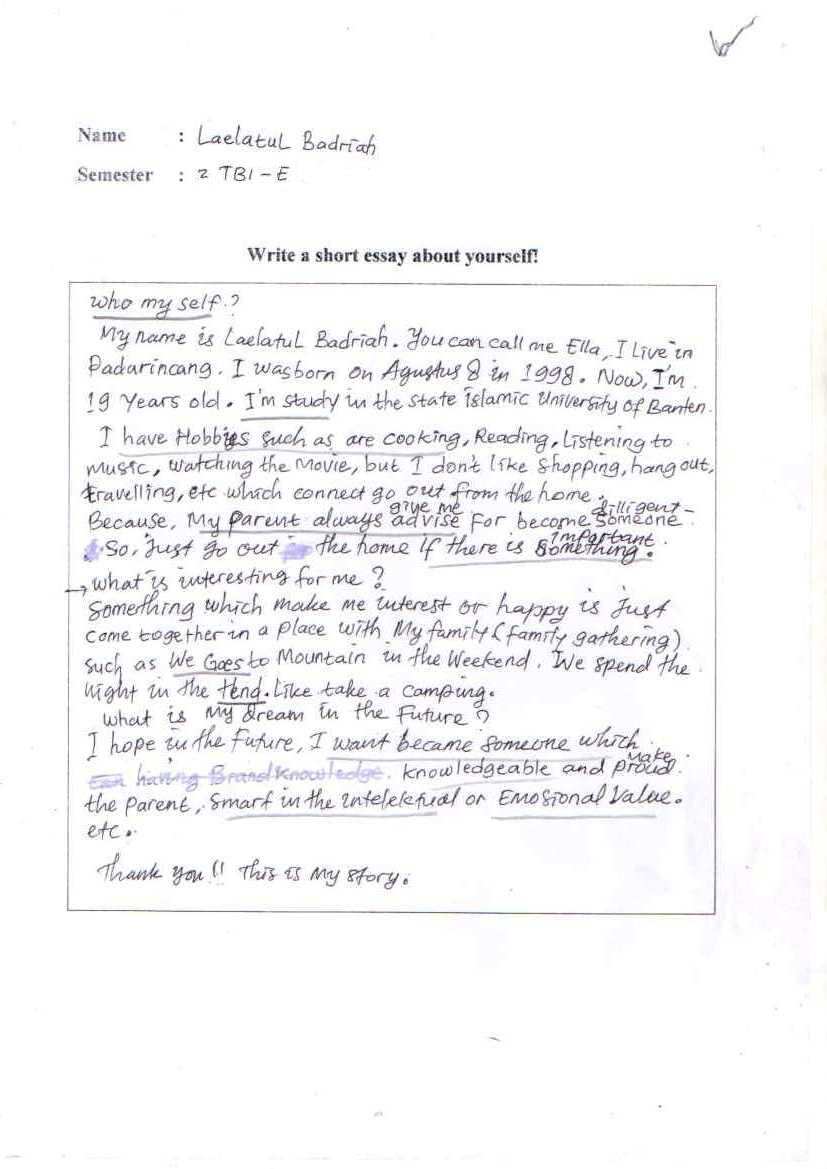 Name : Laelatul Badriah
Semester : 2 TBI - E
Write a short essay about yourself!
Who my self.?
My name is Laelatul Badriah. You can call me Ella, I Live in
Padarincang. I was born on Agustus 8 in 1998. Now, I'm
19 Years old. I'm study in the state islamic University of Banten.
I have Hobbies such as are cooking, Reading, Listening to
music, watching the Movie, but I don't like Shopping, hang out,
travelling, etc which connect go out from the home.
give me dilligent
Because, My parent always advise For become someone.
important
So, just go out the home if there is something.
→ What is interesting for me?
Something which make me interest or happy is just
come together in a place with My family (family gathering)
such as We Goes to Mountain in the Weekend. We spend the
night in the tend. Like take a camping.
What is My dream in the Future?
I hope in the Future, I want became someone which
make
having Brand Knowledge. knowledgeable and proud
the parent, Smart in the intelektual or Emosional Value.
etc.
Thank you!! This is My story.